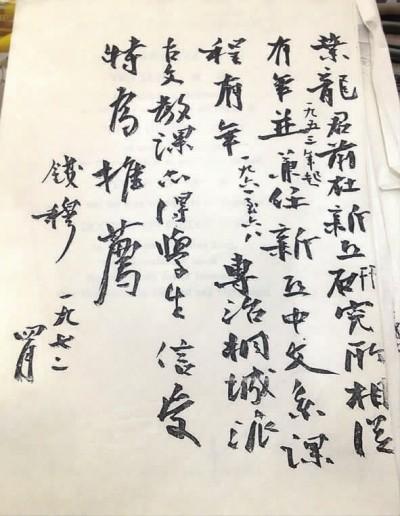 葉龍君前在新亞研究所相從
有年 一九五三年起 並兼任新亞中文系課
程有年 一九六一至六八 專治桐城派
古文教課亦得學生信受
特为推薦
錢穆
一九七二
四月